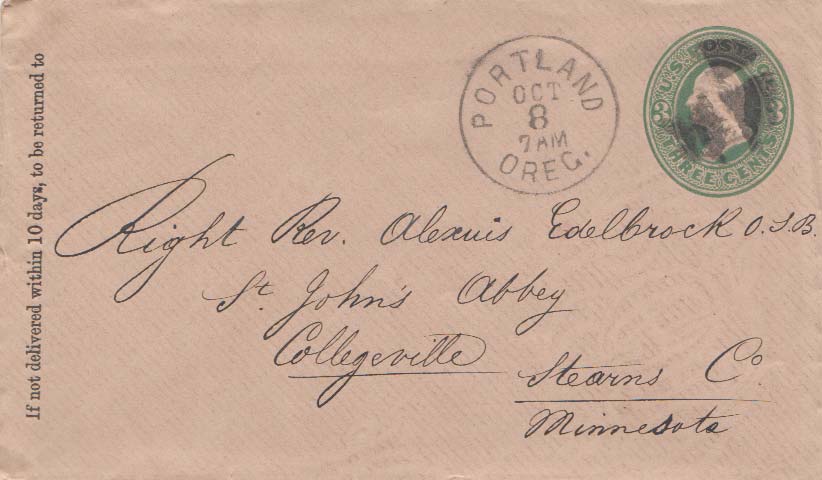 If not delivered within 10 days, to be returned to
PORTLAND
OCT
8
7AM
OREG.
U.S. POSTAGE
3 3
THREE CENTS
Right Rev. Alexuis Edelbrock O.S.B.
St. John's Abbey
Collegeville
Stearns Co
Minnesota